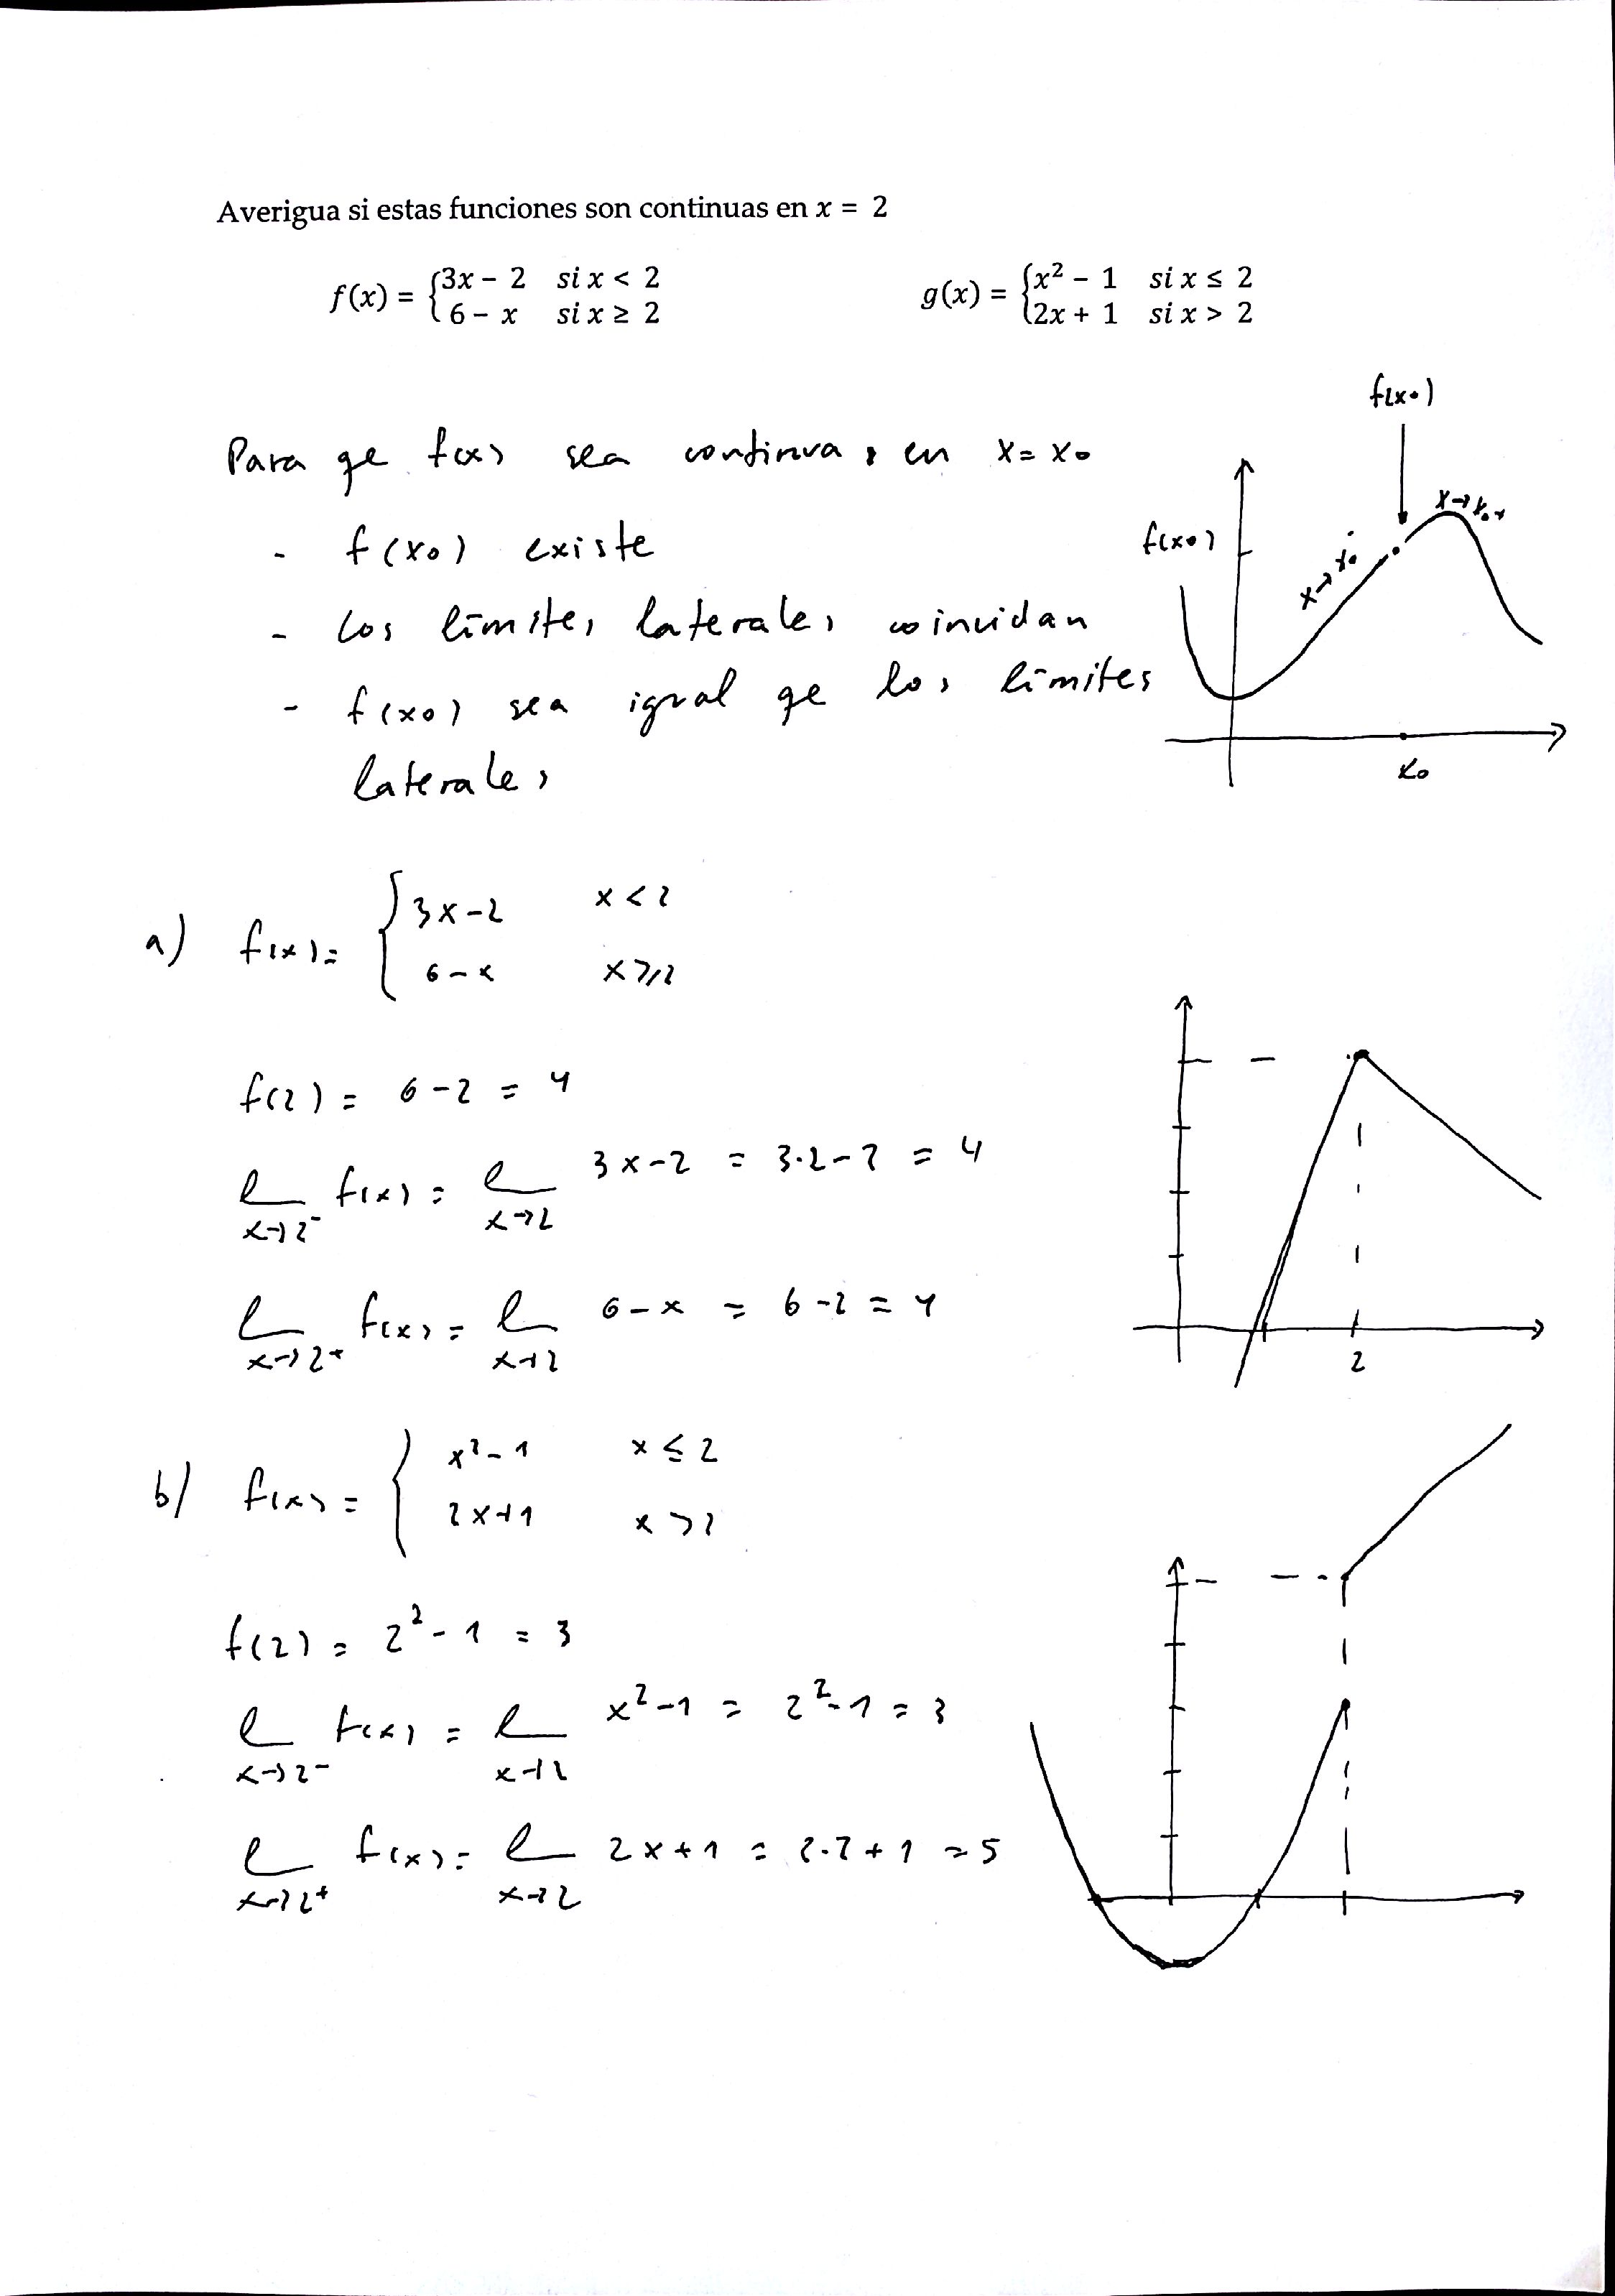 Averigua si estas funciones son continuas en x = 2
f(x) = {3x − 2 si x < 2
6 − x si x ≥ 2
g(x) = {x² − 1 si x ≤ 2
2x + 1 si x > 2
f(x0)
Para qe f(x) sea continua, en x = x0
- f(x0) existe
- los límites laterales coincidan
- f(x0) sea igual qe los límites
laterales
f(x0)
x→x0-
x→x0+
x0
a) f(x) = { 3x-2 x < 2
6-x x ≥ 2
f(2) = 6-2 = 4
l x→2- f(x) = l x→2 3x-2 = 3·2-2 = 4
l x→2+ f(x) = l x→2 6-x = 6-2 = 4
2
b) f(x) = { x²-1 x ≤ 2
2x+1 x > 2
f(2) = 2²-1 = 3
l x→2- f(x) = l x→2 x²-1 = 2²-1 = 3
l x→2+ f(x) = l x→2 2x+1 = 2·2+1 = 5